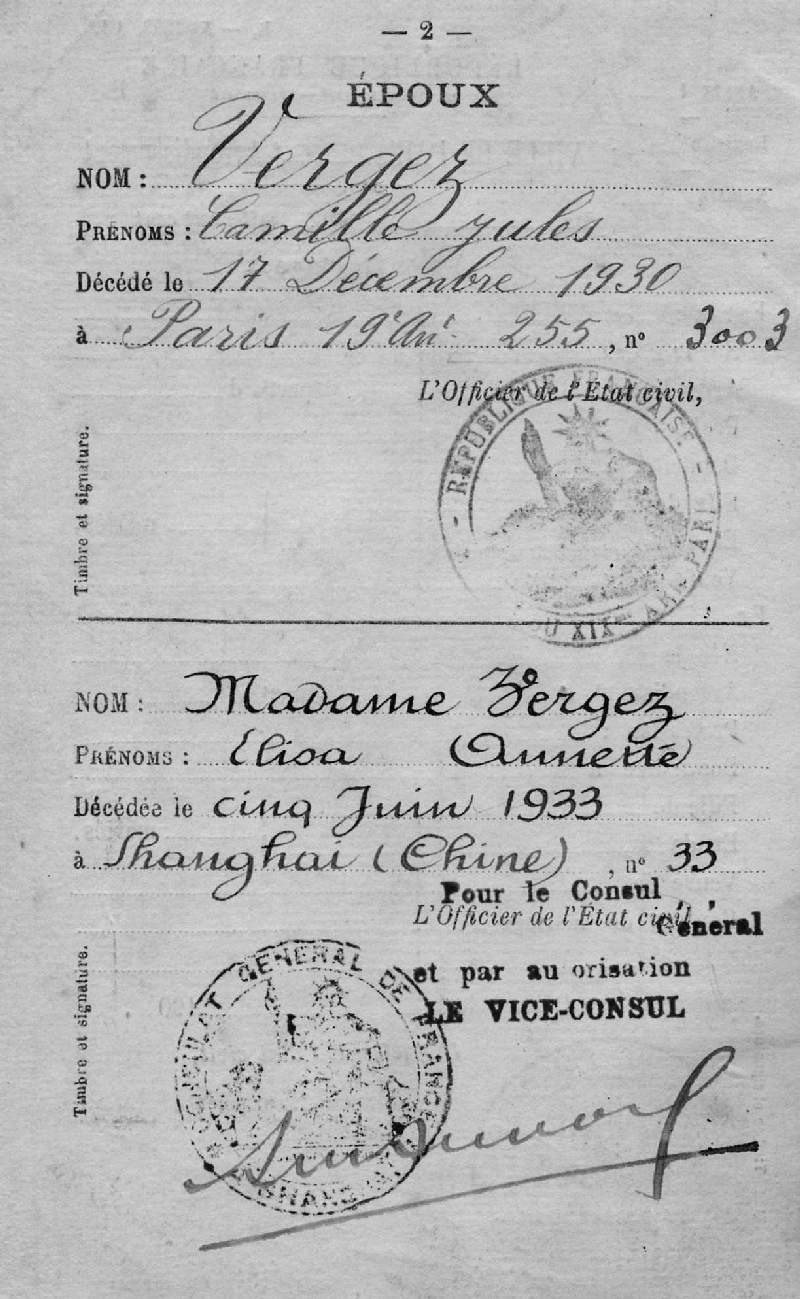 — 2 —
ÉPOUX
NOM : Vergez
PRÉNOMS : Camille Jules
Décédé le 17 Décembre 1930
à Paris 19e Arr. 255, n° 3003
L'Officier de l'État civil,
RÉPUBLIQUE FRANÇAISE - DU XIXme ARR. PARIS
Timbre et signature.
NOM : Madame Vergez
PRÉNOMS : Elisa Annette
Décédée le cinq Juin 1933
à Shanghai (Chine), n° 33
Pour le Consul Général
L'Officier de l'État civil,
et par au orisation
LE VICE-CONSUL
CONSULAT GENERAL DE FRANCE SHANGHAI
Timbre et signature.